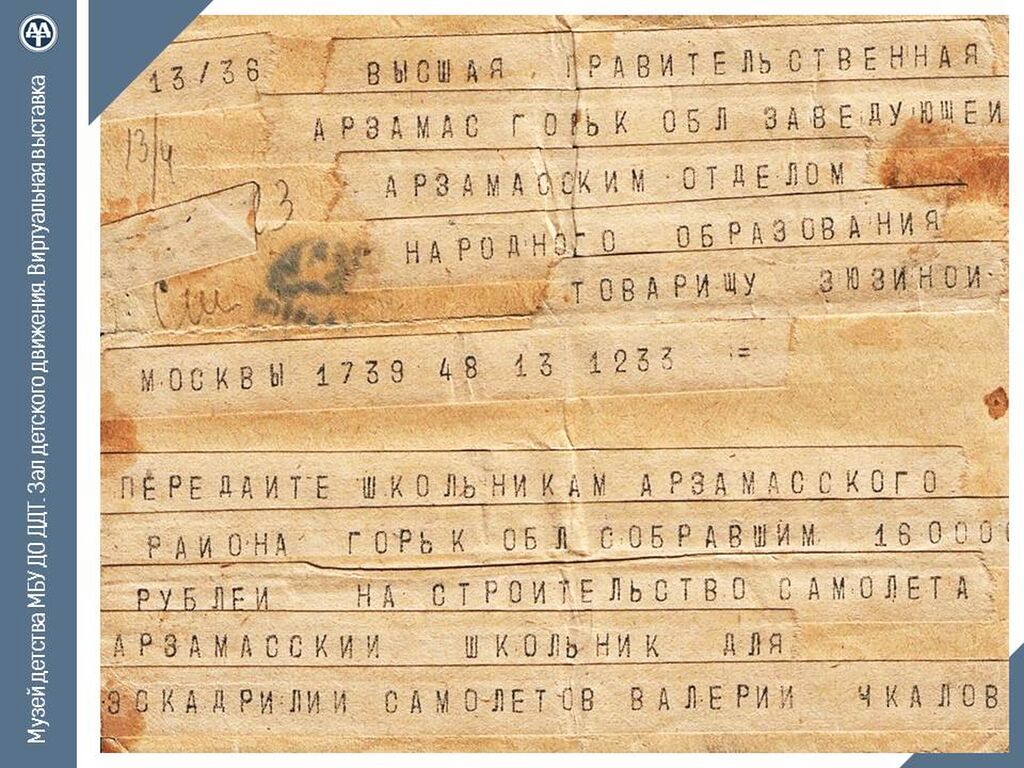 Музей детства МБУ ДО ДДТ. Зал детского движения. Виртуальная выставка
13/36
ВЫСШАЯ ПРАВИТЕЛЬСТВЕННАЯ
13/4
АРЗАМАС ГОРЬК ОБЛ ЗАВЕДУЮЩЕИ
АРЗАМАССКИМ ОТДЕЛОМ
НАРОДНОГО ОБРАЗОВАНИЯ
ТОВАРИЩУ ЗЮЗИНОИ
МОСКВЫ 1739 48 13 1233 =
ПЕРЕДАИТЕ ШКОЛЬНИКАМ АРЗАМАССКОГО
РАИОНА ГОРЬК ОБЛ СОБРАВШИМ 160000
РУБЛЕИ НА СТРОИТЕЛЬСТВО САМОЛЕТА
АРЗАМАССКИИ ШКОЛЬНИК ДЛЯ
ЭСКАДРИЛИИ САМОЛЕТОВ ВАЛЕРИИ ЧКАЛОВ